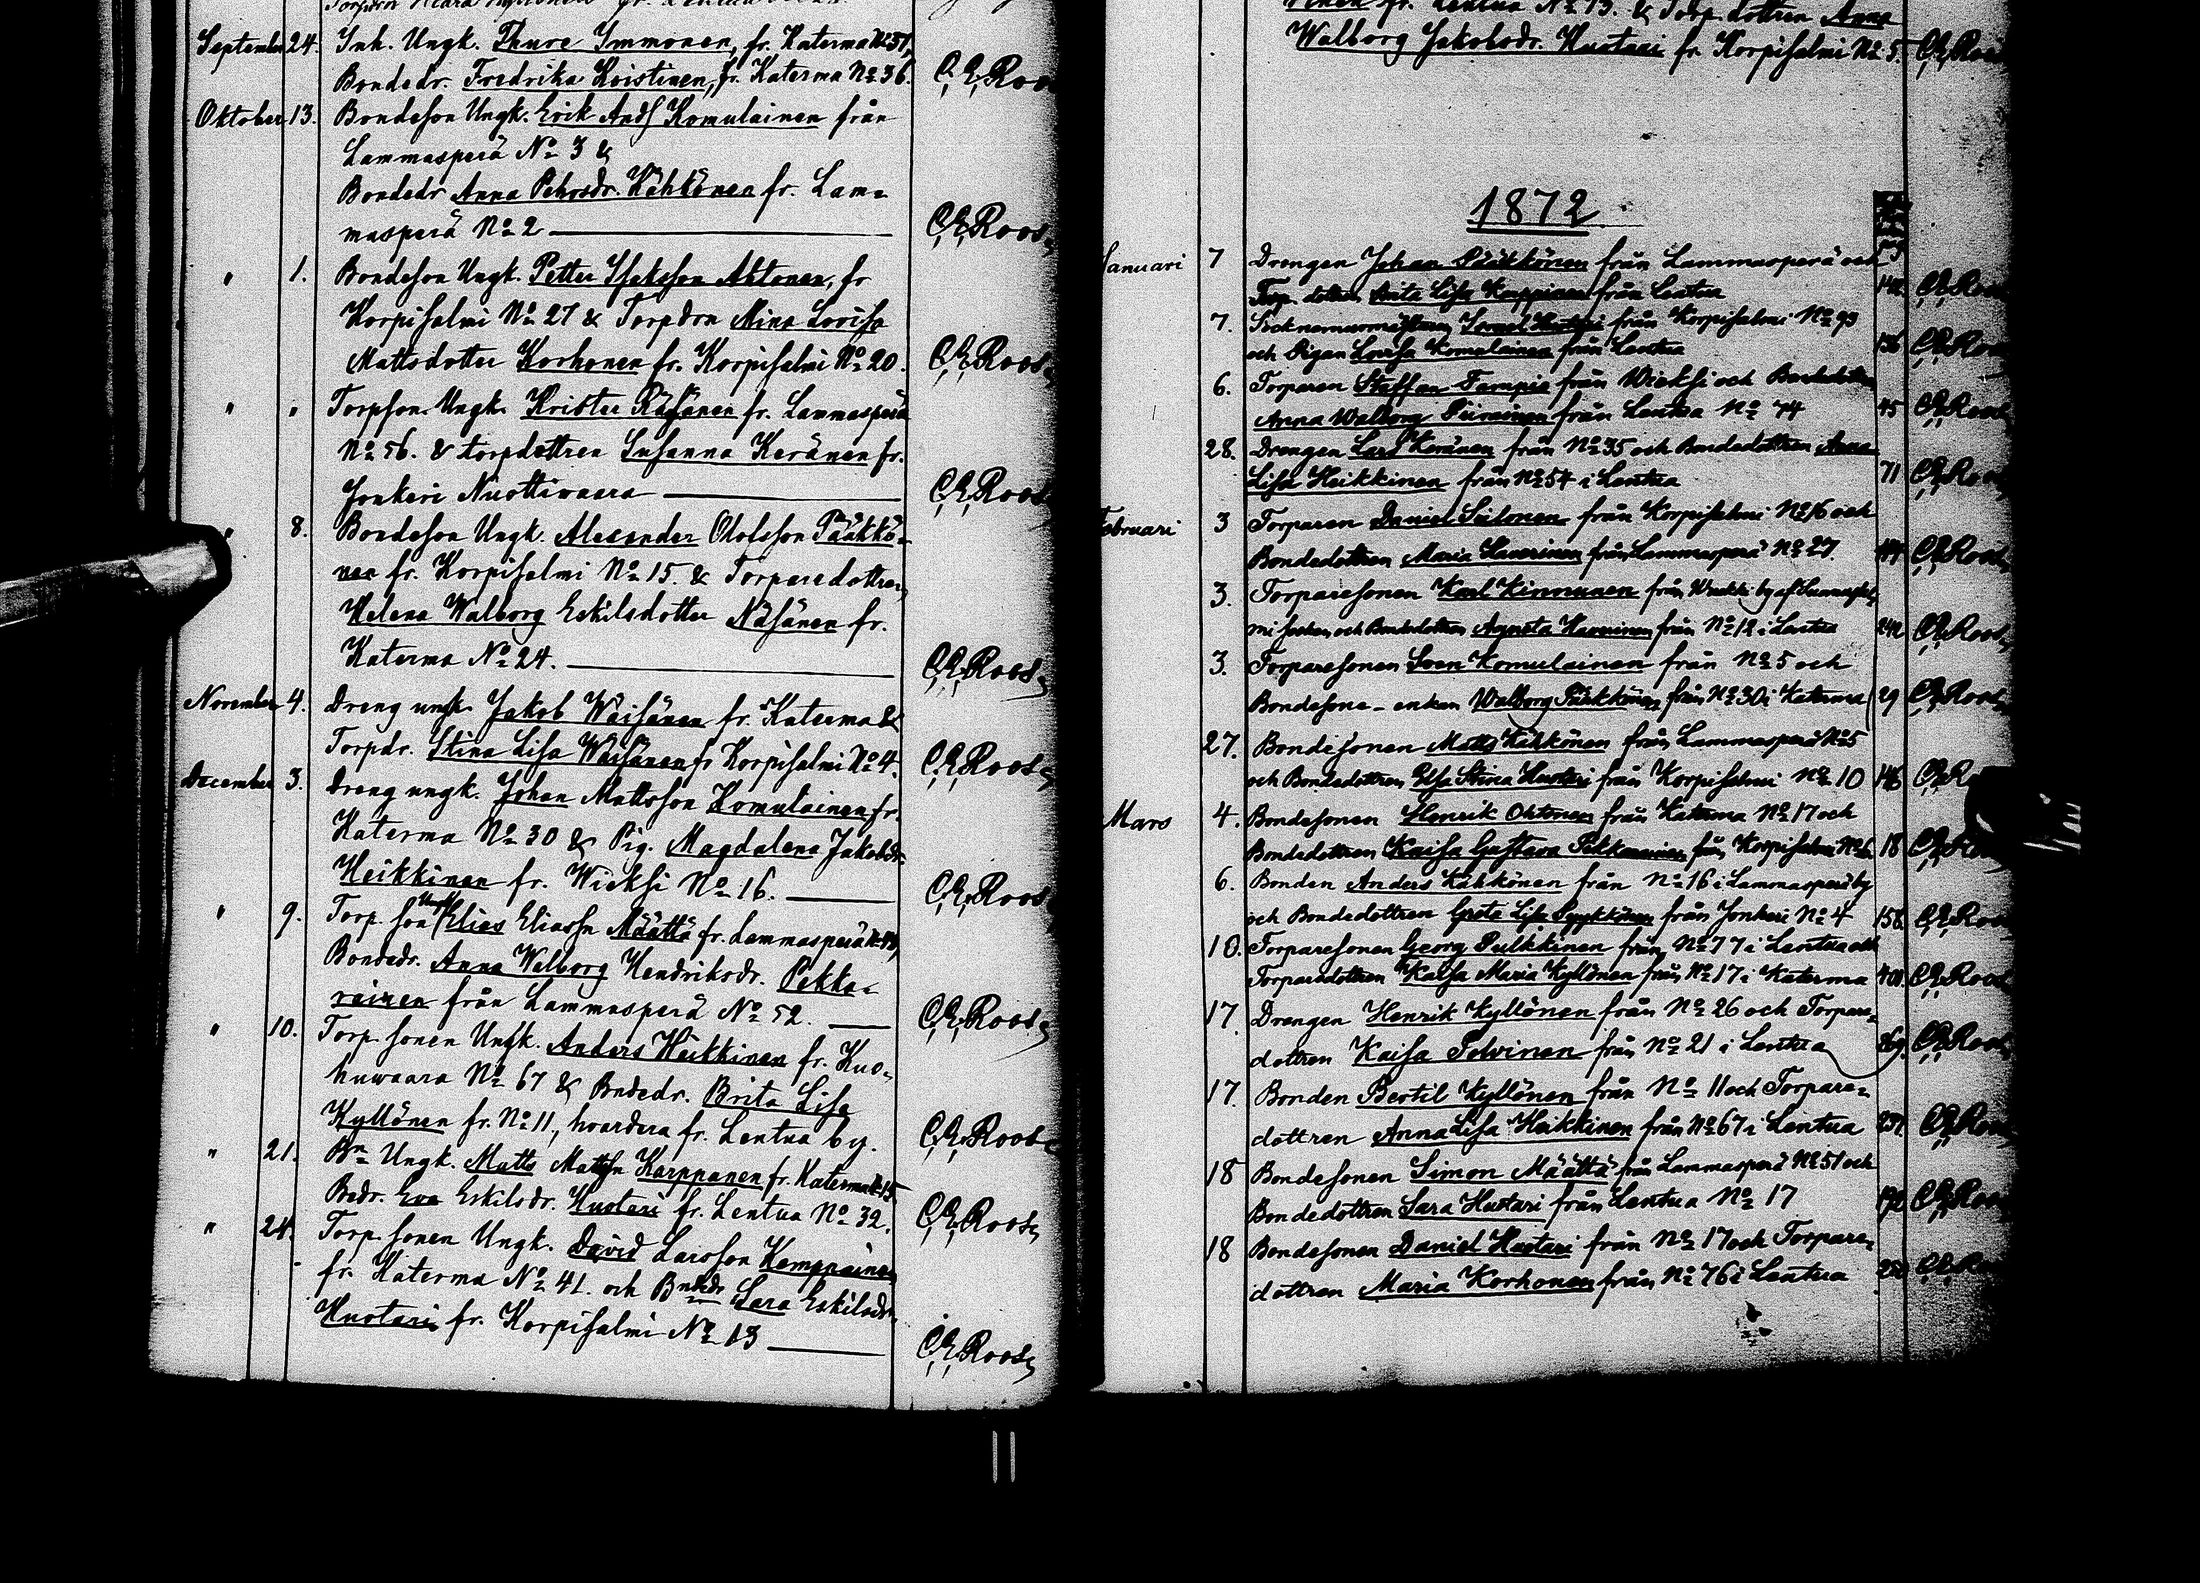 September 24. Inh. Ungk. Thure Immonen, fr. Katerma No 51,
Bondedr. Fredrika Koistinen, fr. Katerma No 36. C. E. Roos
Oktober 13. Bondeson Ungk. Erik Ands Komulainen från
Lammasperä No 3 &
Bondedr Anna Pehrsdr. Kähkönen fr. Lam-
masperä No 2 C. E. Roos
" 1. Bondeson Ungk. Petter Isaksson Ahtonen, fr
Korpisalmi No 27 & Torpdrn Mina Lovisa
Mattsdotter Korhonen fr. Korpisalmi No 20. C. E. Roos
" " Torpson Ungk. Krister Räsänen fr. Lammasperä
No 56. & torpdottren Susanna Keränen fr.
Jonkeri Nuottivaara C. E. Roos
" 8. Bondeson Ungk. Alexander Olofsson Pääkkö-
nen fr. Korpisalmi No 15. & Torparedottren
Helena Walborg Eskilsdotter Näsänen fr.
Katerma No 24. C. E. Roos
November 4. Dreng ungk. Jakob Wäisänen fr. Katerma &
Torpdr. Stina Lisa Wäisänen fr Korpisalmi No 4. C. E. Roos
December 3. Dreng ungk. Johan Mattsson Komulainen fr.
Katerma No 30 & Pig. Magdalena Jakobsdr.
Heikkinen fr. Wieksi No 16. C. E. Roos
" 9. Torp. son Ungk Elias Eliassn Määttä fr. Lammasperä
Bondedr. Anna Walborg Hendriksdr. Pekka-
rainen från Lammasperä No 52. C. E. Roos
" 10. Torp. sonen Ungk. Anders Heikkinen fr. Kuo-
huwaara No 67 & Bndedr. Brita Lisa
Kyllönen fr. No 11, hvardera fr. Lentua by. C. E. Roos
" 21. Bn Ungk. Matts Mattsn Karppanen fr. Katerma No 15
Bndr. Eva Eskilsdr. Huotari fr. Lentua No 32. C. E. Roos
" 24. Torp. sonen Ungk. David Larsson Kemppainen
fr. Katerma No 41. och Bndedr Sara Eskilsdr.
Huotari fr. Korpisalmi No 13 C. E. Roos
fr. Lentua No 13. & Torp. dottren Anna
Walborg Jakobsdr. Huotari fr. Korpisalmi No 5. C. E. Roos
1872
Januari 7 Drengen Johan Pääkkönen från Lammasperä och
Torp. dottren Anita Lisa Karppinen från Lentua 142 C. E. Roos
7. Huotari från Korpisalmi No 93
och Pigan Lovisa Komulainen från Lentua 136 C. E. Roos
6. Torparen Staffan Tampio från Wieksi och Bondedottren
Anna Walborg Piirainen från Lentua No 74 45 C. E. Roos
28. Drengen Lars Keränen från No 35 och Bondedottren Anna
Lisa Heikkinen från No 54 i Lentua 71 C. E. Roos
Februari 3 Torparen Daniel Seilonen från Korpisalmi No 16 och
Bondedottren Maria Haverinen från Lammasperä No 27. C. E. Roos
3. Torparesonen Karl Kinnunen från by af
mi socken och Bondedottren Agneta Haverinen från No 12 i Lentua 242 C. E. Roos
3. Torparesonen Sven Komulainen från No 5 och
Bondesons-enkan Walborg Pääkkönen från No 30 i Katerma 29 C. E. Roos
27. Bondesonen Matts Kähkönen från Lammasperä No 5
och Bondedottren Elsa Stina Huotari från Korpisalmi No 10 146 C. E. Roos
Mars 4. Bondesonen Henrik Ohtonen från Katerma No 17 och
Bondedottren Kaisa Gustava Pikkarainen från Korpisalmi No 6 18 C. E. Roos
6. Bonden Anders Kähkönen från No 16 i Lammasperä by
och Bondedottren Greta Lisa från Jonkeri No 4 158 C. E. Roos
10. Torparesonen Georg Pulkkinen från No 77 i Lentua och
Torparedottren Kaisa Maria Kyllönen från No 17 i Katerma 401. C. E. Roos
17. Drengen Henrik Kyllönen från No 26 och Torpare-
dottren Kaisa Polvinen från No 21 i Lentua 269. C. E. Roos
17. Bonden Bertil Kyllönen från No 11 och Torpare-
dottren Anna Lisa Heikkinen från No 67 i Lentua 237. C. E. Roos
18 Bondesonen Simon Määttä från Lammasperä No 51 och
Bondedottren Sara Huotari från Lentua No 17 C. E. Roos
18 Bondesonen Daniel Huotari från No 17 och Torpare-
dottren Maria Korhonen från No 76 i Lentua C. E. Roos